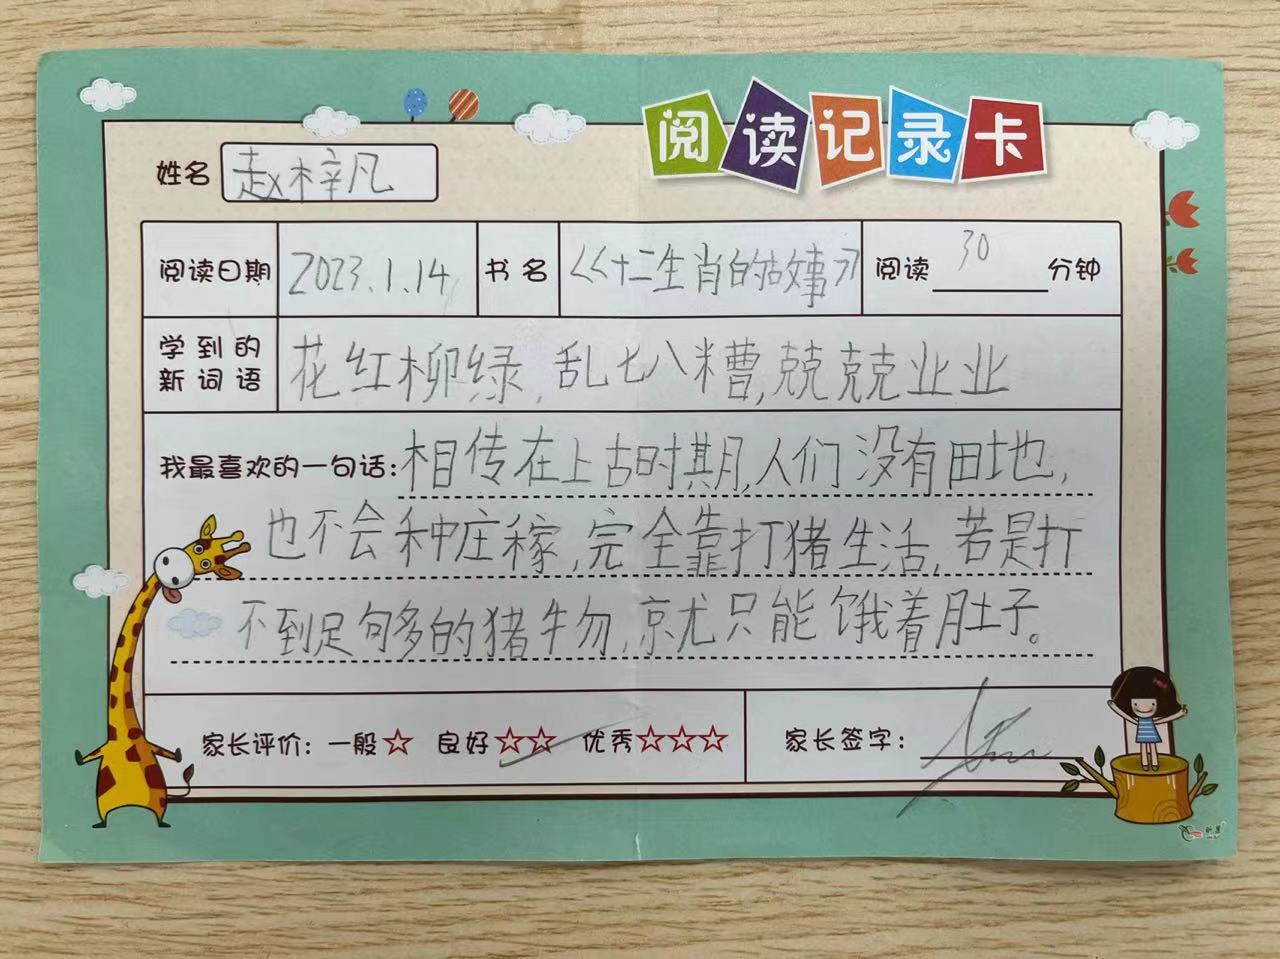 阅读记录卡
姓名 赵梓凡
阅读日期 2023.1.14 书名 《十二生肖的故事》 阅读 30 分钟
学到的新词语 花红柳绿,乱七八糟,兢兢业业
我最喜欢的一句话:相传在上古时期,人们没有田地,
也不会种庄稼,完全靠打猪生活,若是打
不到足够多的猪物,就只能饿着肚子。
家长评价:一般☆ 良好☆☆ 优秀☆☆☆ 家长签字: